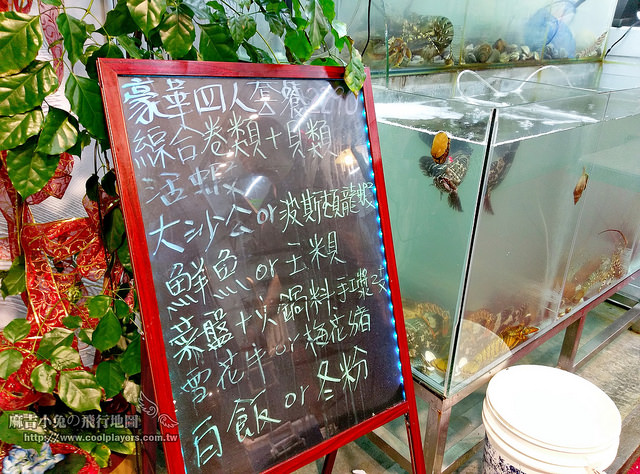 豪華四人套餐2290
綜合卷類+貝類
活蝦
大沙公or波斯頓龍蝦
鮮魚or玉米
菜盤+火鍋料手工漿2支
雪花牛or梅花豬
白飯or冬粉
麻吉小兔の飛行地圖
https://www.coolplayers.com.tw